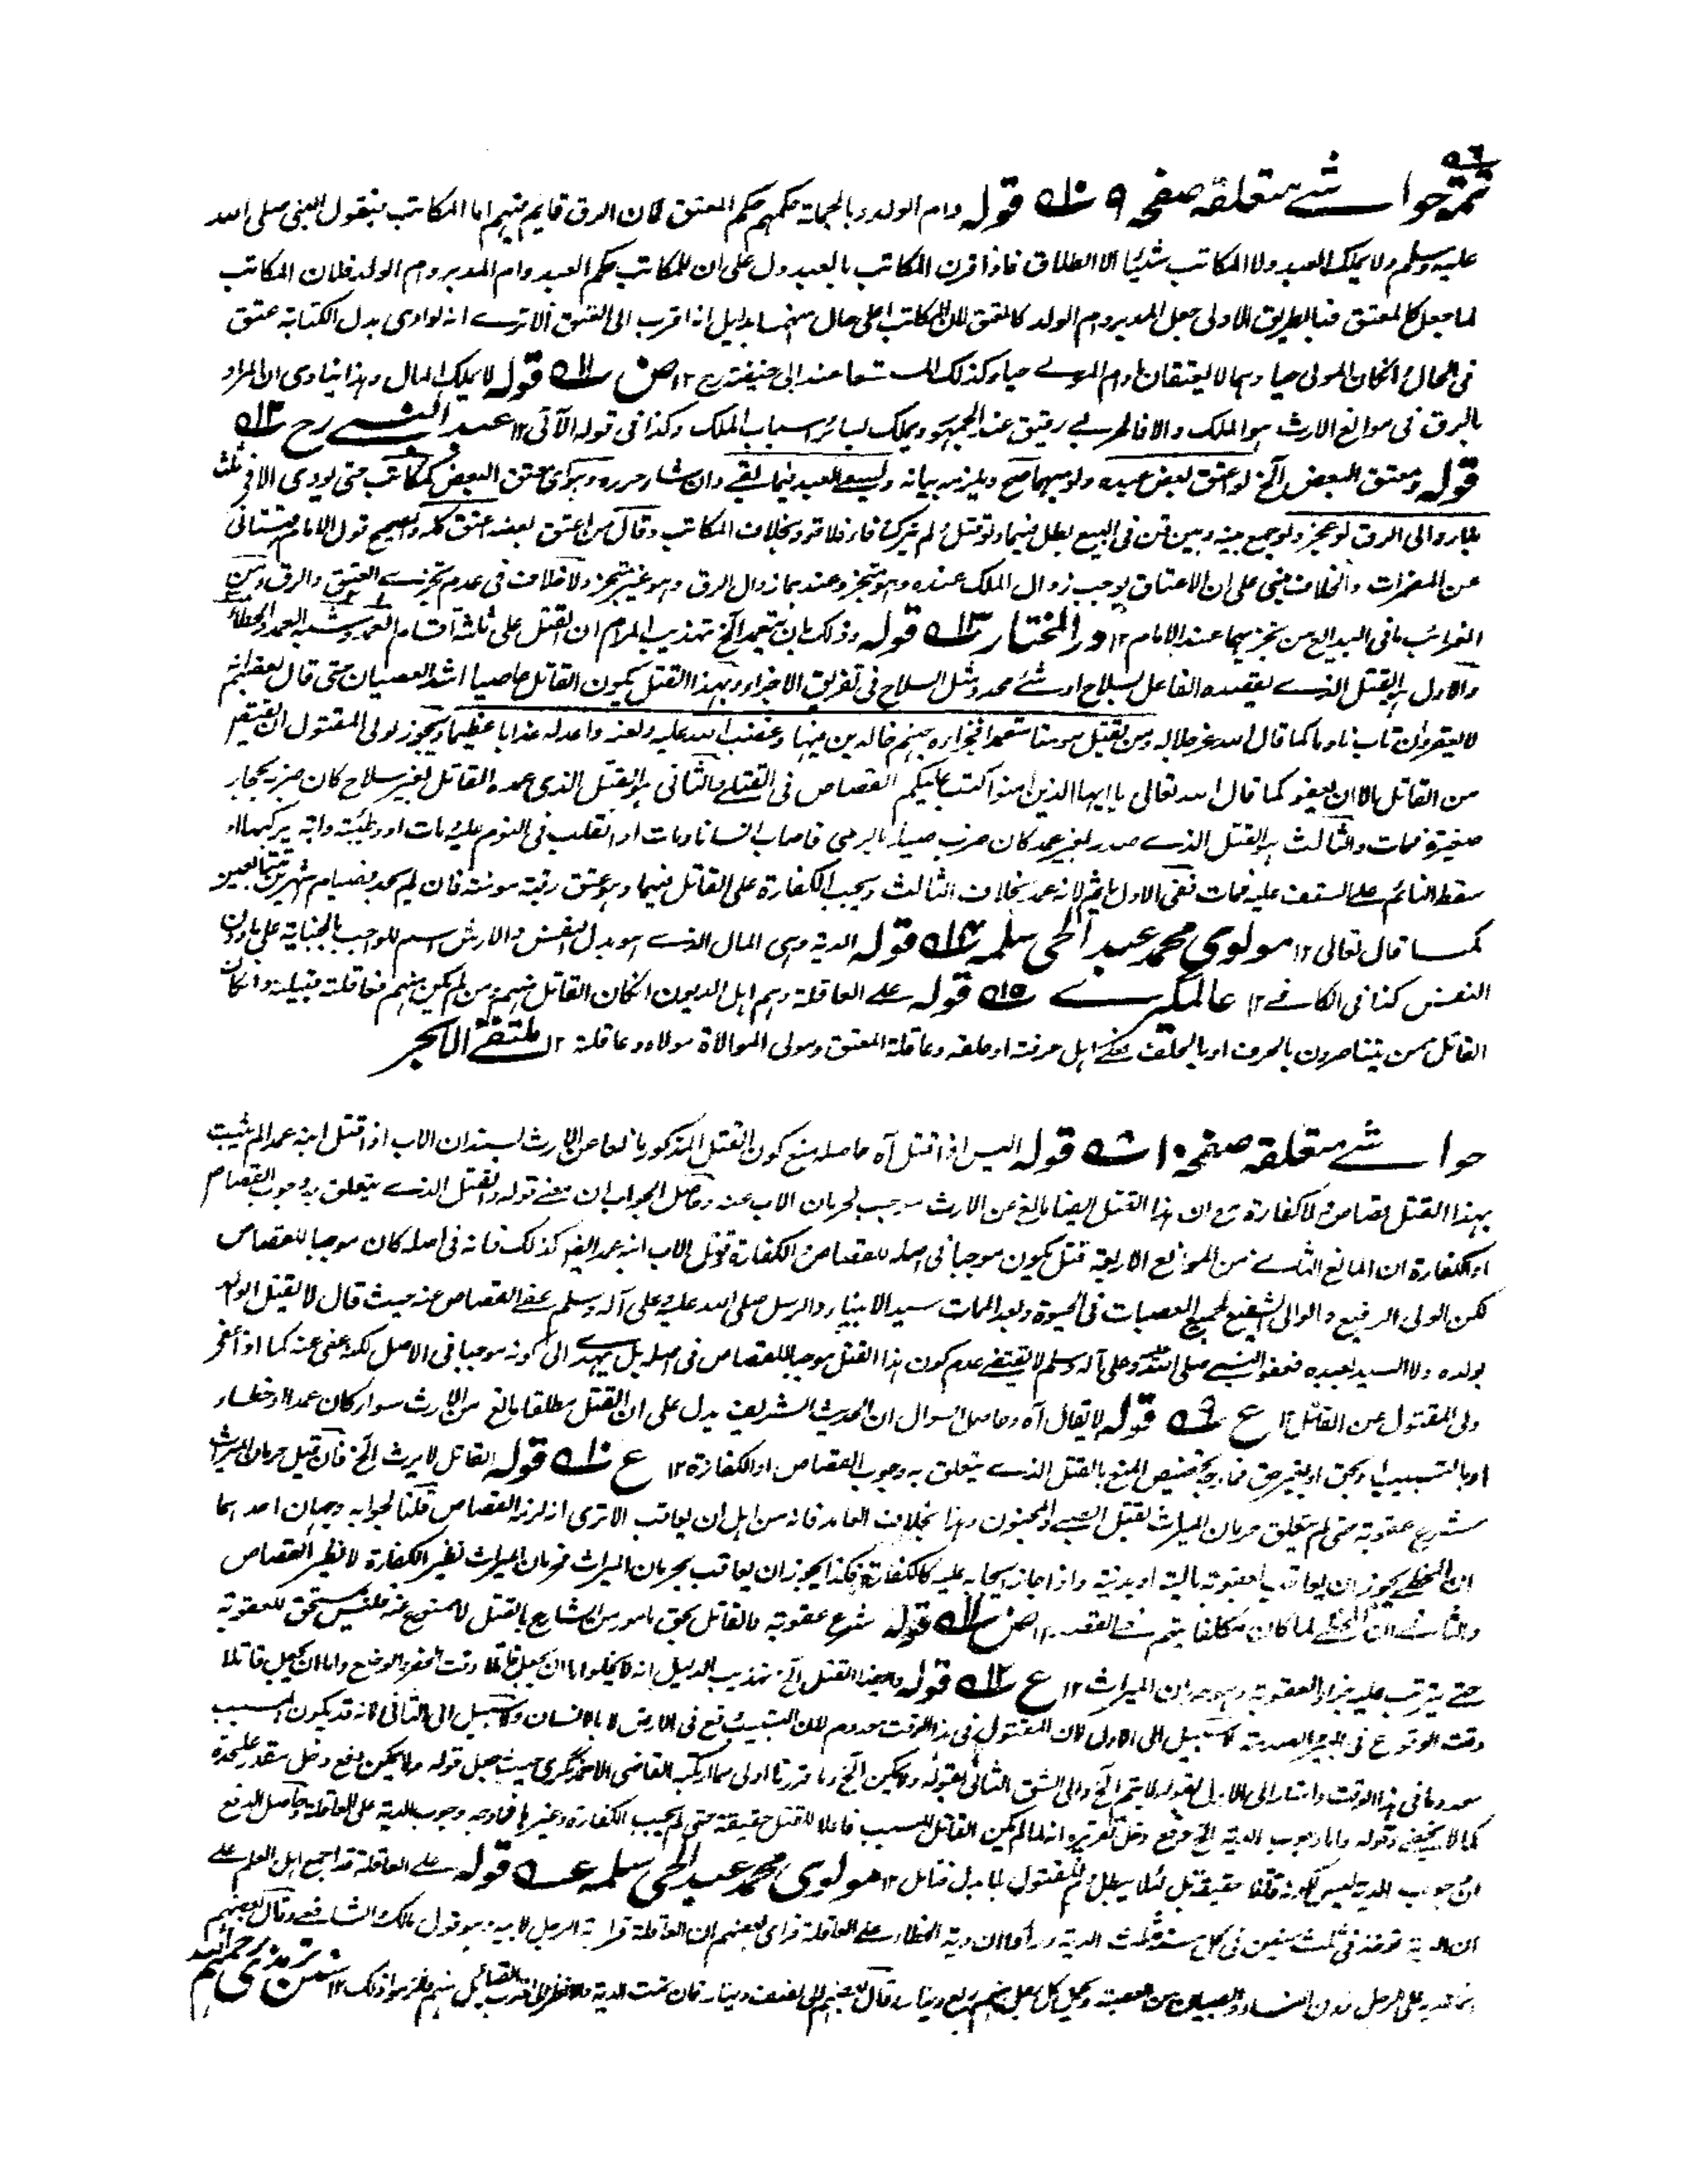 ٥٦
تتمة حواشے متعلقہ صفحہ ٩ قولہ وام الولد وبالجملة حکمہم حکم المعتق لان الرق قایم فیہم اما المکاتب فبقول النبی صلی اللہ
علیہ وسلم ولا یملک العبد ولا المکاتب شیئا الا الطلاق فاذا قرن المکاتب بالعبد دل علی ان للمکاتب حکم العبد واما المدبر وام الولد فلان المکاتب
لما جعل کالمعتق فبالطریق الاولی جعل المدبر وام الولد کالمعتق لان المکاتب اعلی حال منہما بدلیل انہ اقرب الی العتق الا ترے انہ لو ادی بدل الکتابة عتق
فی الحال وان کان المولی حیا وہما لا یعتقان ما دام المولے حیا وکذلک المستسعا عند ابی حنیفة رح ١٢ ص قولہ لا یملک المال وہذا ینادی ان المراد
بالرق فی موانع الارث ہو الملک والا فالحربے رقیق عند الجمہور ویملک بسائر اسباب الملک وکذا فی قولہ الآتی ١٢ عبد النبے رح
قولہ ومعتق البعض الخ لو اعتق بعض عبده ولو مبہما صح ویلزمہ بیانہ ویسعے العبد فیما بقے وان شاء حرره وہو ای معتق البعض کمکاتب حتی یودی الا فی ثلث
بلا رد الی الرق لو عجز ولو جمع بینہ وبین قن فی البیع بطل فیہما ولو قتل ولم یترک وفاء فلا قود بخلاف المکاتب وقالا من اعتق بعضہ عتق کلہ والصحیح قول الامام قہستانی
عن المضمرات والخلاف مبنی علی ان الاعتاق یوجب زوال الملک عنده وہو متجز وعندہما زوال الرق وہو غیر متجز ولا خلاف فی عدم تجزے العتق والرق ومن
الغرائب ما فی البدایع من تجزیہما عند الامام ١٢ در المختار قولہ وذلک بان یتعمد الخ تہذیب المرام ان القتل علی ثلثة اقسام العمد وشبہ العمد والخطاء
والاول ہو القتل الذے یقصده الفاعل بسلاح او شئے محدد مثل السلاح فی تفریق الاجزاء وبہذا القتل یکون القاتل عاصیا اشد العصیان حتی قال بعضہم انہ
لا یغفر وان تاب نادما کما قال اللہ عز جلالہ ومن یقتل مومنا متعمدا فجزاؤه جہنم خالدین فیہا وغضب اللہ علیہ ولعنہ واعد لہ عذابا عظیما ویجوز لولی المقتول ان یقتص
من القاتل الا ان یعفو کما قال اللہ تعالی یا ایہا الذین امنوا کتب علیکم القصاص فی القتلے والثانی ہو القتل الذی عمده القاتل بغیر سلاح کان ضربہ بحجار
صغیرة فمات والثالث ہو القتل الذے صدر بغیر عمد کان ضرب صیدا بالرمی فاصاب انسانا ومات او انقلب فی النوم علیہ ومات او وطئتہ دابة یرکبہا او
سقط النائم علے السقف علیہ فمات ففی الاول یاثم لانہ عمد بخلاف الثالث ویجب الکفارة علی القاتل فیہما وہو عتق رقبة مومنة فان لم یجد فصیام شہرین متتابعین
کما قال تعالی ١٢ مولوی محمد عبد الحی سلمہ قولہ الدیة وہی المال الذے ہو بدل النفس والارش اسم للواجب بالجنایة علی ما دون
النفس کذا فی الکافے ١٢ عالمگیرے قولہ علے العاقلة وہم اہل الدیون ان کان القاتل منہم ومن لم یکن منہم فعاقلتہ قبیلتہ وان کان
القاتل ممن یتناصرون بالحرف او بالحلف فعلے اہل حرفتہ او حلفہ وعاقلة المعتق ومولی الموالاة مولاه وعاقلتہ ١٢ ملتقے الابحر
حواشے متعلقہ صفحہ ١٠ قولہ الیس اذا قتل آه حاصلہ منع کون القتل المذکور مانعا عن الارث بسند ان الاب اذا قتل ابنہ عمدا لم یثبت
بہذا القتل قصاص ولا کفارة مع ان ہذا القتل ایضا مانع عن الارث موجب لحرمان الاب عنہ وحاصل الجواب ان معنے قولہ والقتل الذے یتعلق بہ وجوب القصاص
او الکفارة ان المانع الثانے من الموانع الاربعة قتل یکون موجبا فی اصلہ للقصاص او الکفارة وقتل الاب ابنہ عمدا ایضا کذلک فانہ فی اصلہ کان موجبا للقصاص
لکن الولی الرفیع والوالی الشفیع لجمیع العصبات فی الحیوة وبعد الممات سید الانبیاء والرسل صلی اللہ علیہ وعلی آلہ وسلم عفے القصاص عنہ حیث قال لا یقتل الوالد
بولده ولا السید بعبده فعفو النبے صلی اللہ علیہ وعلی آلہ وسلم لا یقتضے عدم کون ہذا القتل موجبا للقصاص فی اصلہ بل یہدے الی کونہ موجبا فی الاصل لکنہ عفی عنہ کما اذا عفی
ولی المقتول عن القاتل ١٢ ع قولہ لا یقال آه وحاصل السوال ان الحدیث الشریف یدل علی ان القتل مطلقا مانع من الارث سواء کان عمدا او خطاء
او بالتسبیب او بحق او بغیر حق فما وجہ تخصیص المنع بالقتل الذے یتعلق بہ وجوب القصاص او الکفارة ١٢ ع قولہ القاتل لا یرث الخ فان قیل حرمان المیراث
شرع عقوبة حتی لم یتعلق حرمان المیراث بقتل الصبے والمجنون وہذا بخلاف العامد فانہ من اہل ان یعاقب الا تری انہ لزمہ القصاص قلنا الجواب وجہان احدہما
ان الخطے یجوز ان یعاقب بعقوبة مالیة او بدنیة واذا جاز ایجابہ علیہ کالکفارة فکذا یجوز ان یعاقب بحرمان المیراث فحرمان المیراث نظیر الکفارة لا نظیر القصاص
والثانے ان الخطے لما کان مکلفا یتہم فے القصد ١٢ ص قولہ شرع عقوبة فالقاتل بحق مامور من الشارع بالقتل لا ممنوع عنہ فلیس مستحق للعقوبة
حتے یترتب علیہ جزاء العقوبة وہو حرمان المیراث ١٢ ع قولہ وایضا القتل الخ تہذیب الدلیل انہ لا یخلو اما ان یجعل قاتلا وقت الحفر والوضع واما ان یجعل قاتلا
وقت الوقوع فی البیر لا سبیل الی الاول لان المقتول فی ہذا الوقت معدوم لان التسبیب وقع فی الارض لا بالانسان ولا سبیل الی الثانی لانہ قد یکون المسبب
معدوما فی ہذا الوقت واشار الی الاول بقولہ لا یتم الخ والی الشق الثانی بقولہ ولا یمکن الخ وما قررنا اولی مما ارتکبہ القاضی الاحمد نگری حیث جعل قولہ ولا یمکن دفع دخل مقدر علیحدة
کما لا یخفے وقولہ واما وجوب الدیة الخ دفع دخل تقریره انہ لما لم یکن القاتل المسبب قاتلا للقتل حقیقة حتی لم یجب الکفارة وغیرہا فما وجہ وجوب الدیة علی العاقلة وحاصل الدفع
ان وجوب الدیة لیس لکونہ قاتلا حقیقة بل لئلا یبطل دم المقتول بلا بدل فتامل ١٢ مولوی محمد عبد الحی سلمہ قولہ علے العاقلة قد اجمع اہل العلم علے
ان الدیة توخذ فی ثلث سنین فی کل سنة ثلث الدیة وراوا ان دیة الخطاء علے العاقلة فرای بعضہم ان العاقلة قرابة الرجل لابیہ وہو قول مالک والشافعے وقال بعضہم
علی الرجل دون النساء والصبیان من العصبة ویحمل کل رجل منہم ربع دینار وقال بعضہم الی نصف دینار فان تمت الدیة والا نظر الی اقرب القبائل منہم فالزموا ذلک ١٢ سنن ترمذی رحمہ اللہ